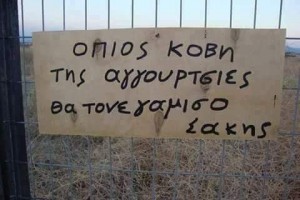 ΟΠΙΟΣ ΚΟΒΗ
της αγγουρτσιες
θα τονε γαμισο
Σακης